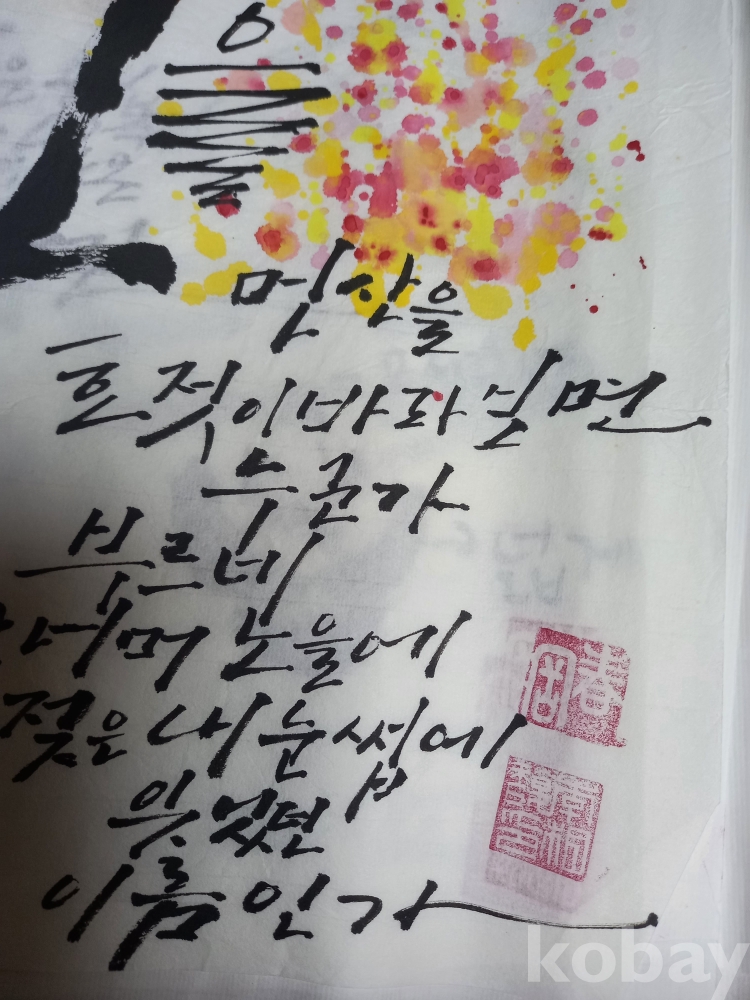 을
먼산을
호젓이 바라보면
누군가
부르네
너머 노을에
젖은 내 눈썹에
잊었던
이름인가
kobay